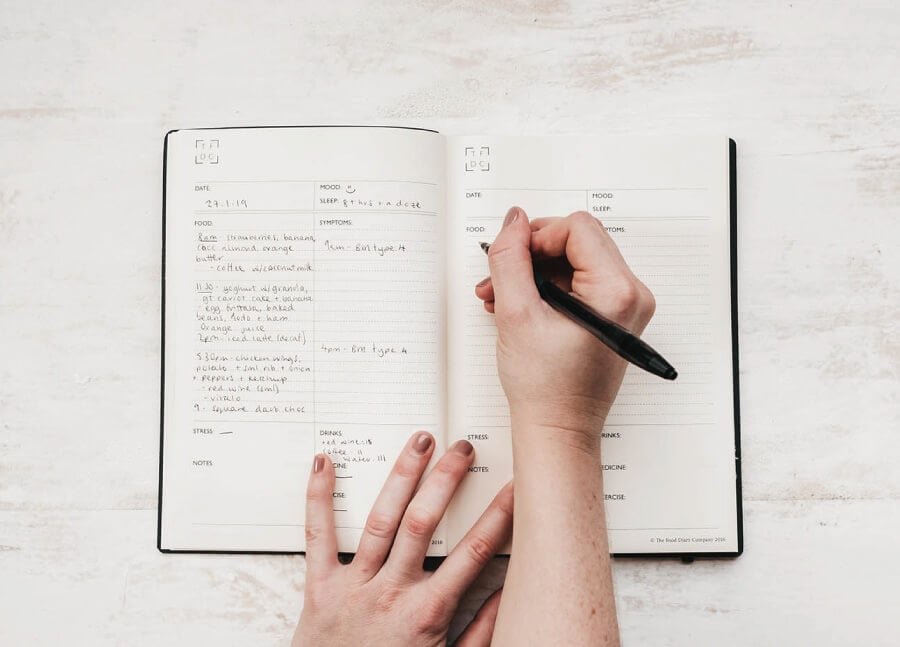 TF
DC
DATE:
27.1.19
MOOD:
SLEEP: 8+hrs
FOOD:
8am - strawberries, banana,
almond orange
butter
- coffee w/coconut milk
11.30 - yoghurt w/granola,
gf carrot cake + banana
- egg frittata, baked
beans, + ham
Orange juice
2pm - iced latte (decaf)
5.30pm - chicken wings,
potato + sml rib + onion
+ peppers + ketchup
- red wine (sml)
9 - square dark choc
SYMPTOMS:
9am - BM type 4
4pm - BM type 4
STRESS:
NOTES:
DRINKS:
red wine - 
coffee - 11
water - 111
CINE:
CISE:
2016
TF
DC
DATE:
MOOD:
SLEEP:
FOOD:
SYMPTOMS:
STRESS:
NOTES:
DRINKS:
MEDICINE:
EXERCISE:
© The Food Diary Company 2016